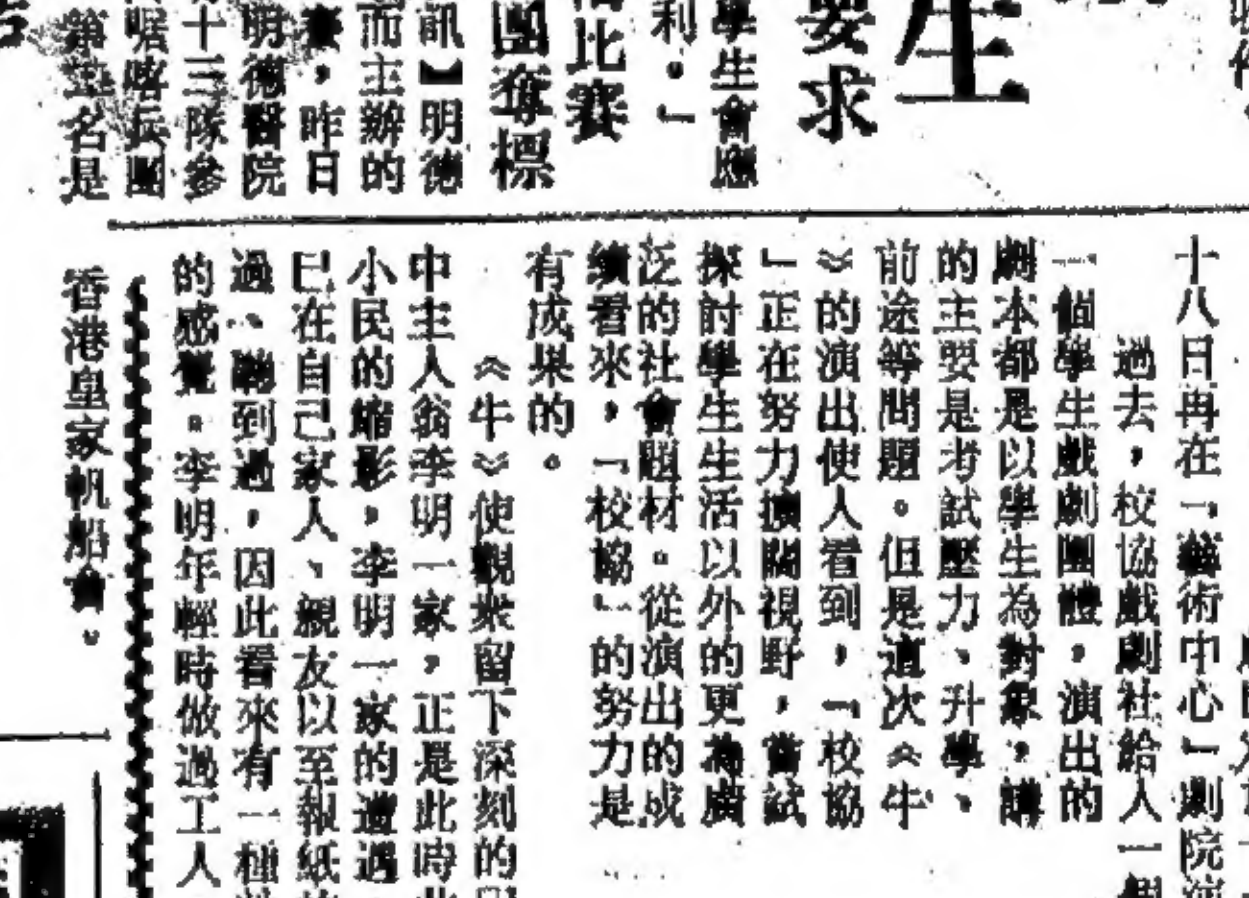 要求
學生會應
利。」
比賽
團奪標
訊】明德
而主辦的
賽，昨日
明德醫院
十三隊參
啹喀兵團
名是
香港皇家帆船會。
十八日再在「藝術中心」劇院演
過去，校協戲劇社給人一個
一個學生戲劇團體，演出的
劇本都是以學生為對象，講
的主要是考試壓力、升學、
前途等問題。但是這次《牛
》的演出使人看到，「校協
」正在努力擴闊視野，嘗試
探討學生生活以外的更為廣
泛的社會題材。從演出的成
績看來，「校協」的努力是
有成果的。
《牛》使觀眾留下深刻的印
中主人翁李明一家，正是此時此
小民的縮影，李明一家的遭遇，
已在自己家人、親友以至報紙
過、聽到過，因此看來有一種
的感覺。李明年輕時做過工人